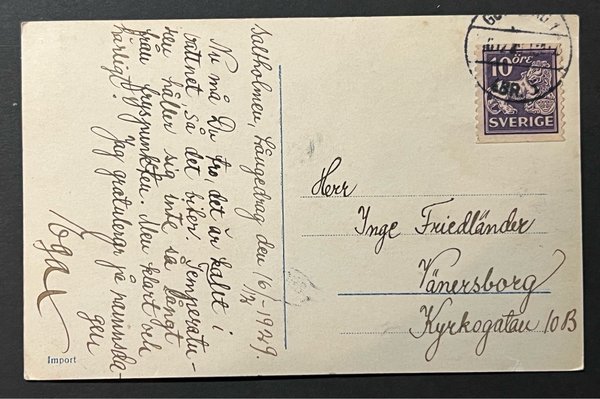 Saltholmen, Långedrag den 16/12 1929.
Nu må Du tro det är kallt i
vattnet, så det biter. Temperatu-
ren håller sig inte så långt
från fryspunkten. Men klart och
härligt! Jag gratulerar på namnsda-
gen
Import
10 ÖRE
SVERIGE
ABR. 3
Herr
Inge Friedländer
Vänersborg
Kyrkogatan 10 B